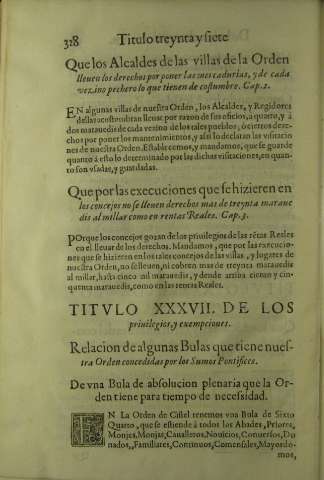 328 Titulo treynta y siete
Que los Alcaldes de las villas de la Orden
lleuen los derechos por poner las mercadurias, y de cada
vezino pechero lo que tienen de costumbre. Cap. 2.
EN algunas villas de nuestra Orden, los Alcaldes, y Regidores
dellas acostumbran lleuar por razon de sus oficios, a quarto, y à dos
marauedis de cada vezino de los tales pueblos, ò ciertos dere-
chos por poner los mantenimientos, y assi lo declaran las visitacio
nes de nuestra Orden. Establecemos, y mandamos, que se guarde
quanto à esto lo determinado por las dichas visitaciones, en quan-
to son vsadas, y guardadas.
Que por las execuciones que se hizieren en
los concejos no se lleuen derechos mas de treynta maraue
dis al millar como en rentas Reales. Cap. 3.
POrque los concejos gozan de los priuilegios de las rētas Reales
en el lleuar de los derechos. Mandamos, que por las execucio-
nes que se hizieren en los tales concejos de las villas, y lugares de
nuestra Orden, no se lleuen, ni cobren mas de treynta marauedis
al millar, hasta cinco mil marauedis, y dende arriba ciento y cin-
quenta marauedis, como en las rentas Reales.
TITVLO XXXVII. DE LOS
priuilegios, y exempciones.
Relacion de algunas Bulas que tiene nues-
tra Orden concedidas por los Sumos Pontifices.
De vna Bula de absolucion plenaria que la Or-
den tiene para tiempo de necessidad.
EN La Orden de Cistel tenemos vna Bula de Sixto
Quarto, que se estiende à todos los Abades, Priores,
Monjes, Monjas, Caualleros, Nouicios, Conuersos, Do
nados, Familiares, Continuos, Comensales, Mayordo-
mos,